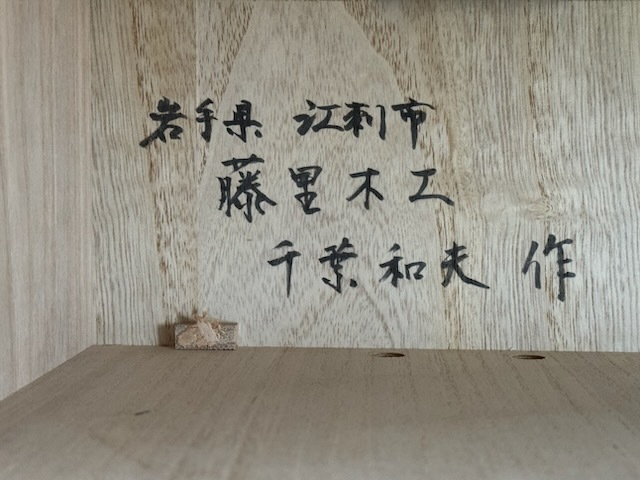 岩手県 江刺市
藤里木工
千葉和夫 作